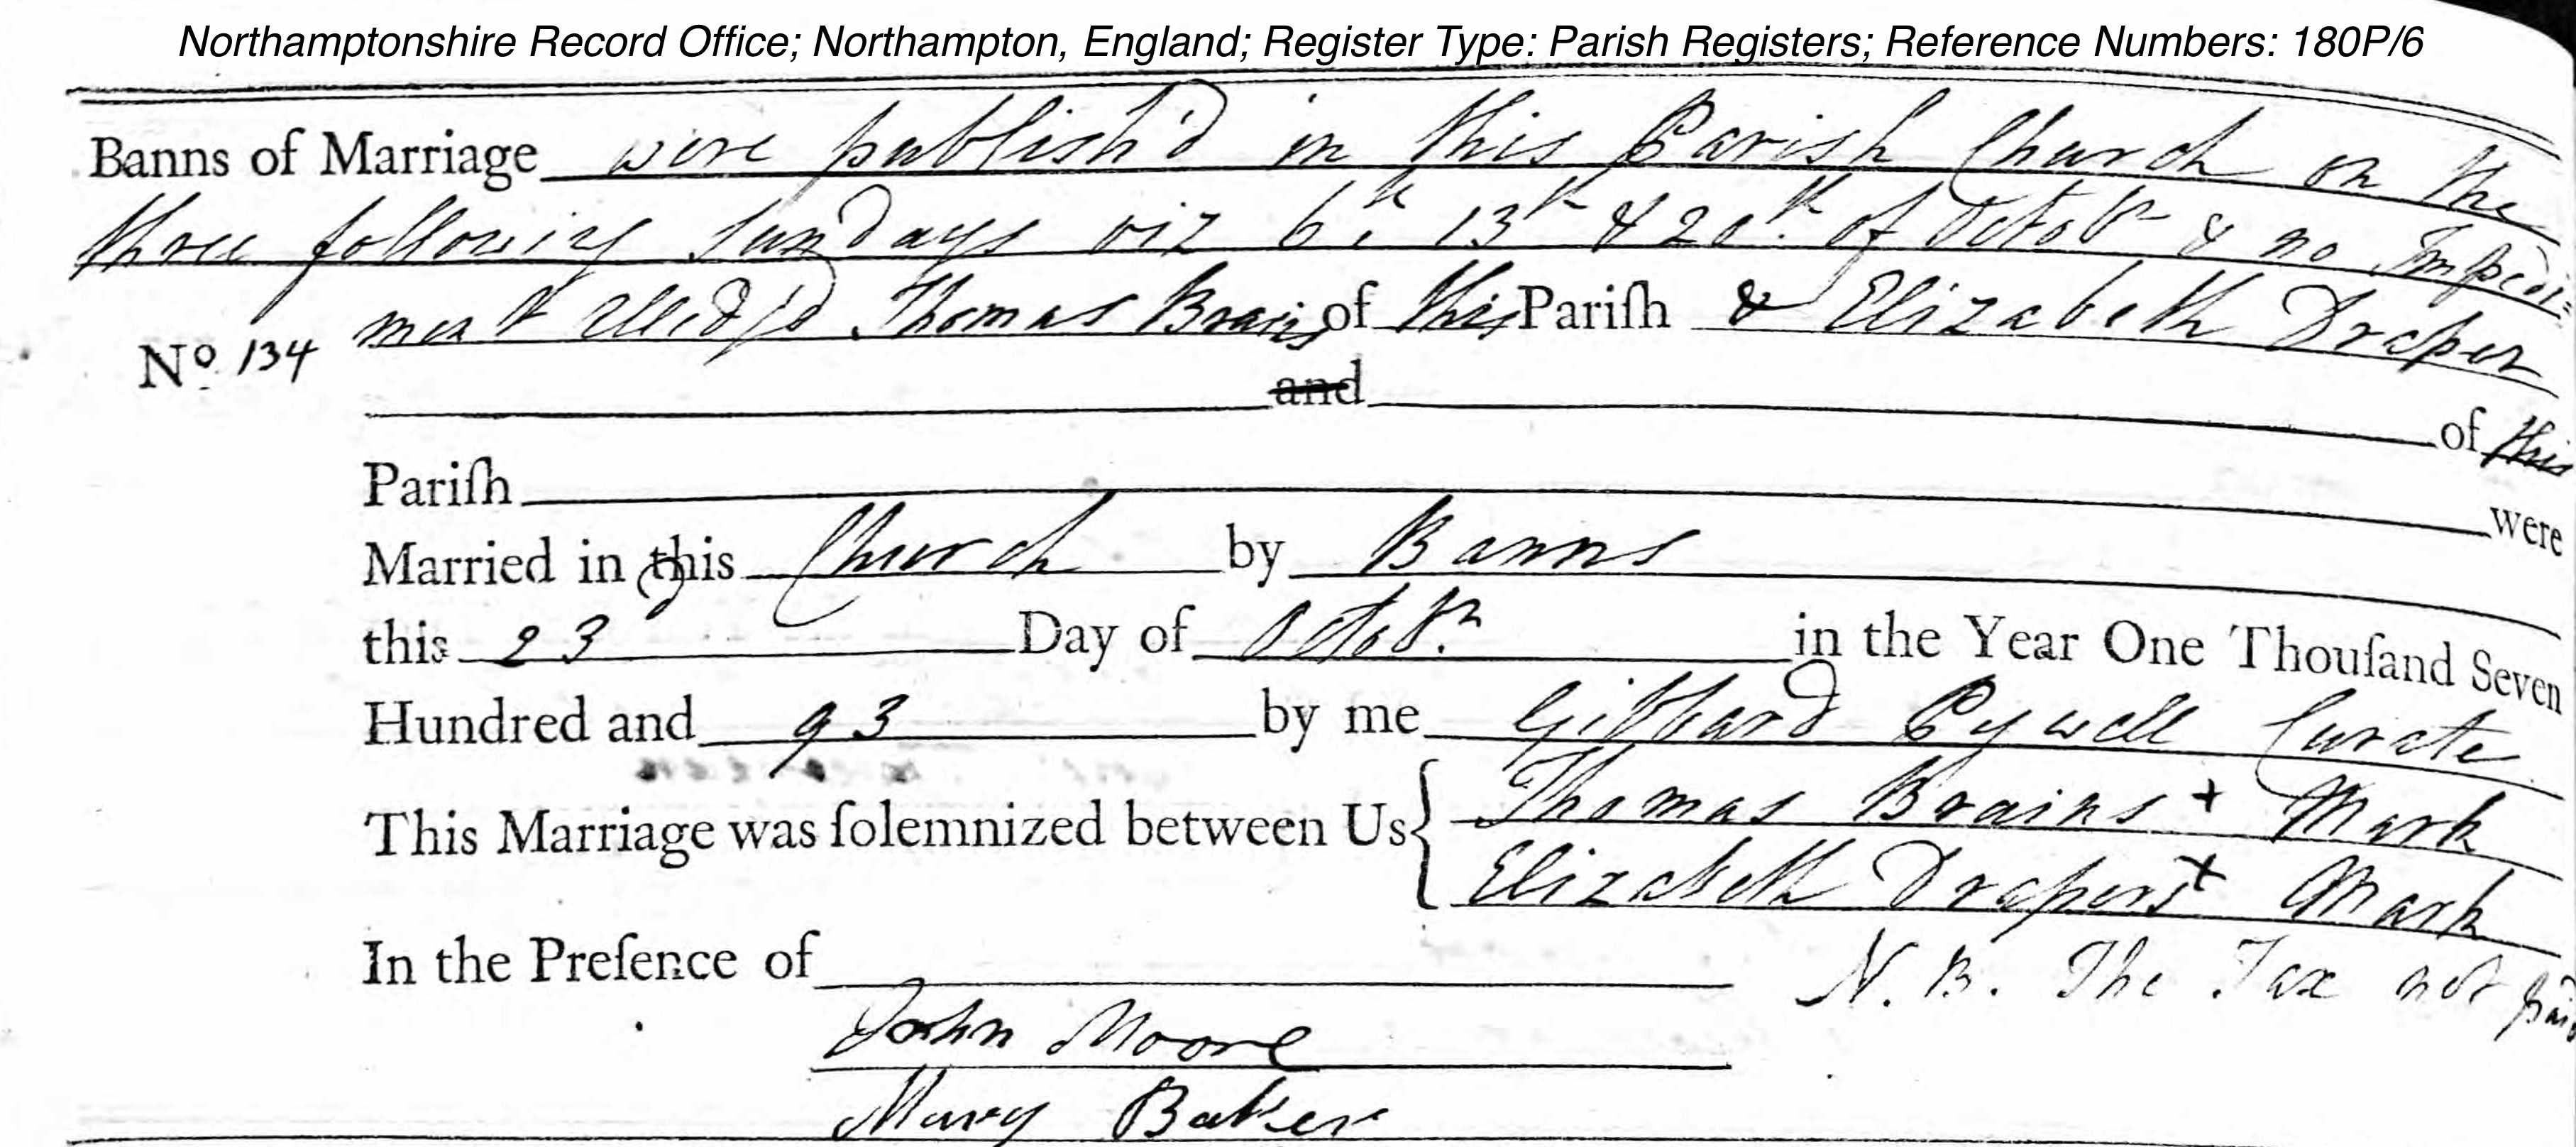 Northamptonshire Record Office; Northampton, England; Register Type: Parish Registers; Reference Numbers: 180P/6
Banns of Marriage were publish'd in this Parish Church on the
three following Sundays viz 6th. 13th & 20th. of Octobr & no Impedi=
ment alledg'd. Thomas Brains of this Pariſh & Elizabeth Draper
No. 134
and
of this
Pariſh were
Married in this Church by Banns
this 23 Day of Octobr. in the Year One Thouſand Seven
Hundred and 93 by me Gibbard Pywell Curate
This Marriage was ſolemnized between Us { Thomas Brains + Mark
Elizabeth Drapers + Mark
In the Preſence of N.B. The Tax not paid
John Moore
Mary Baker